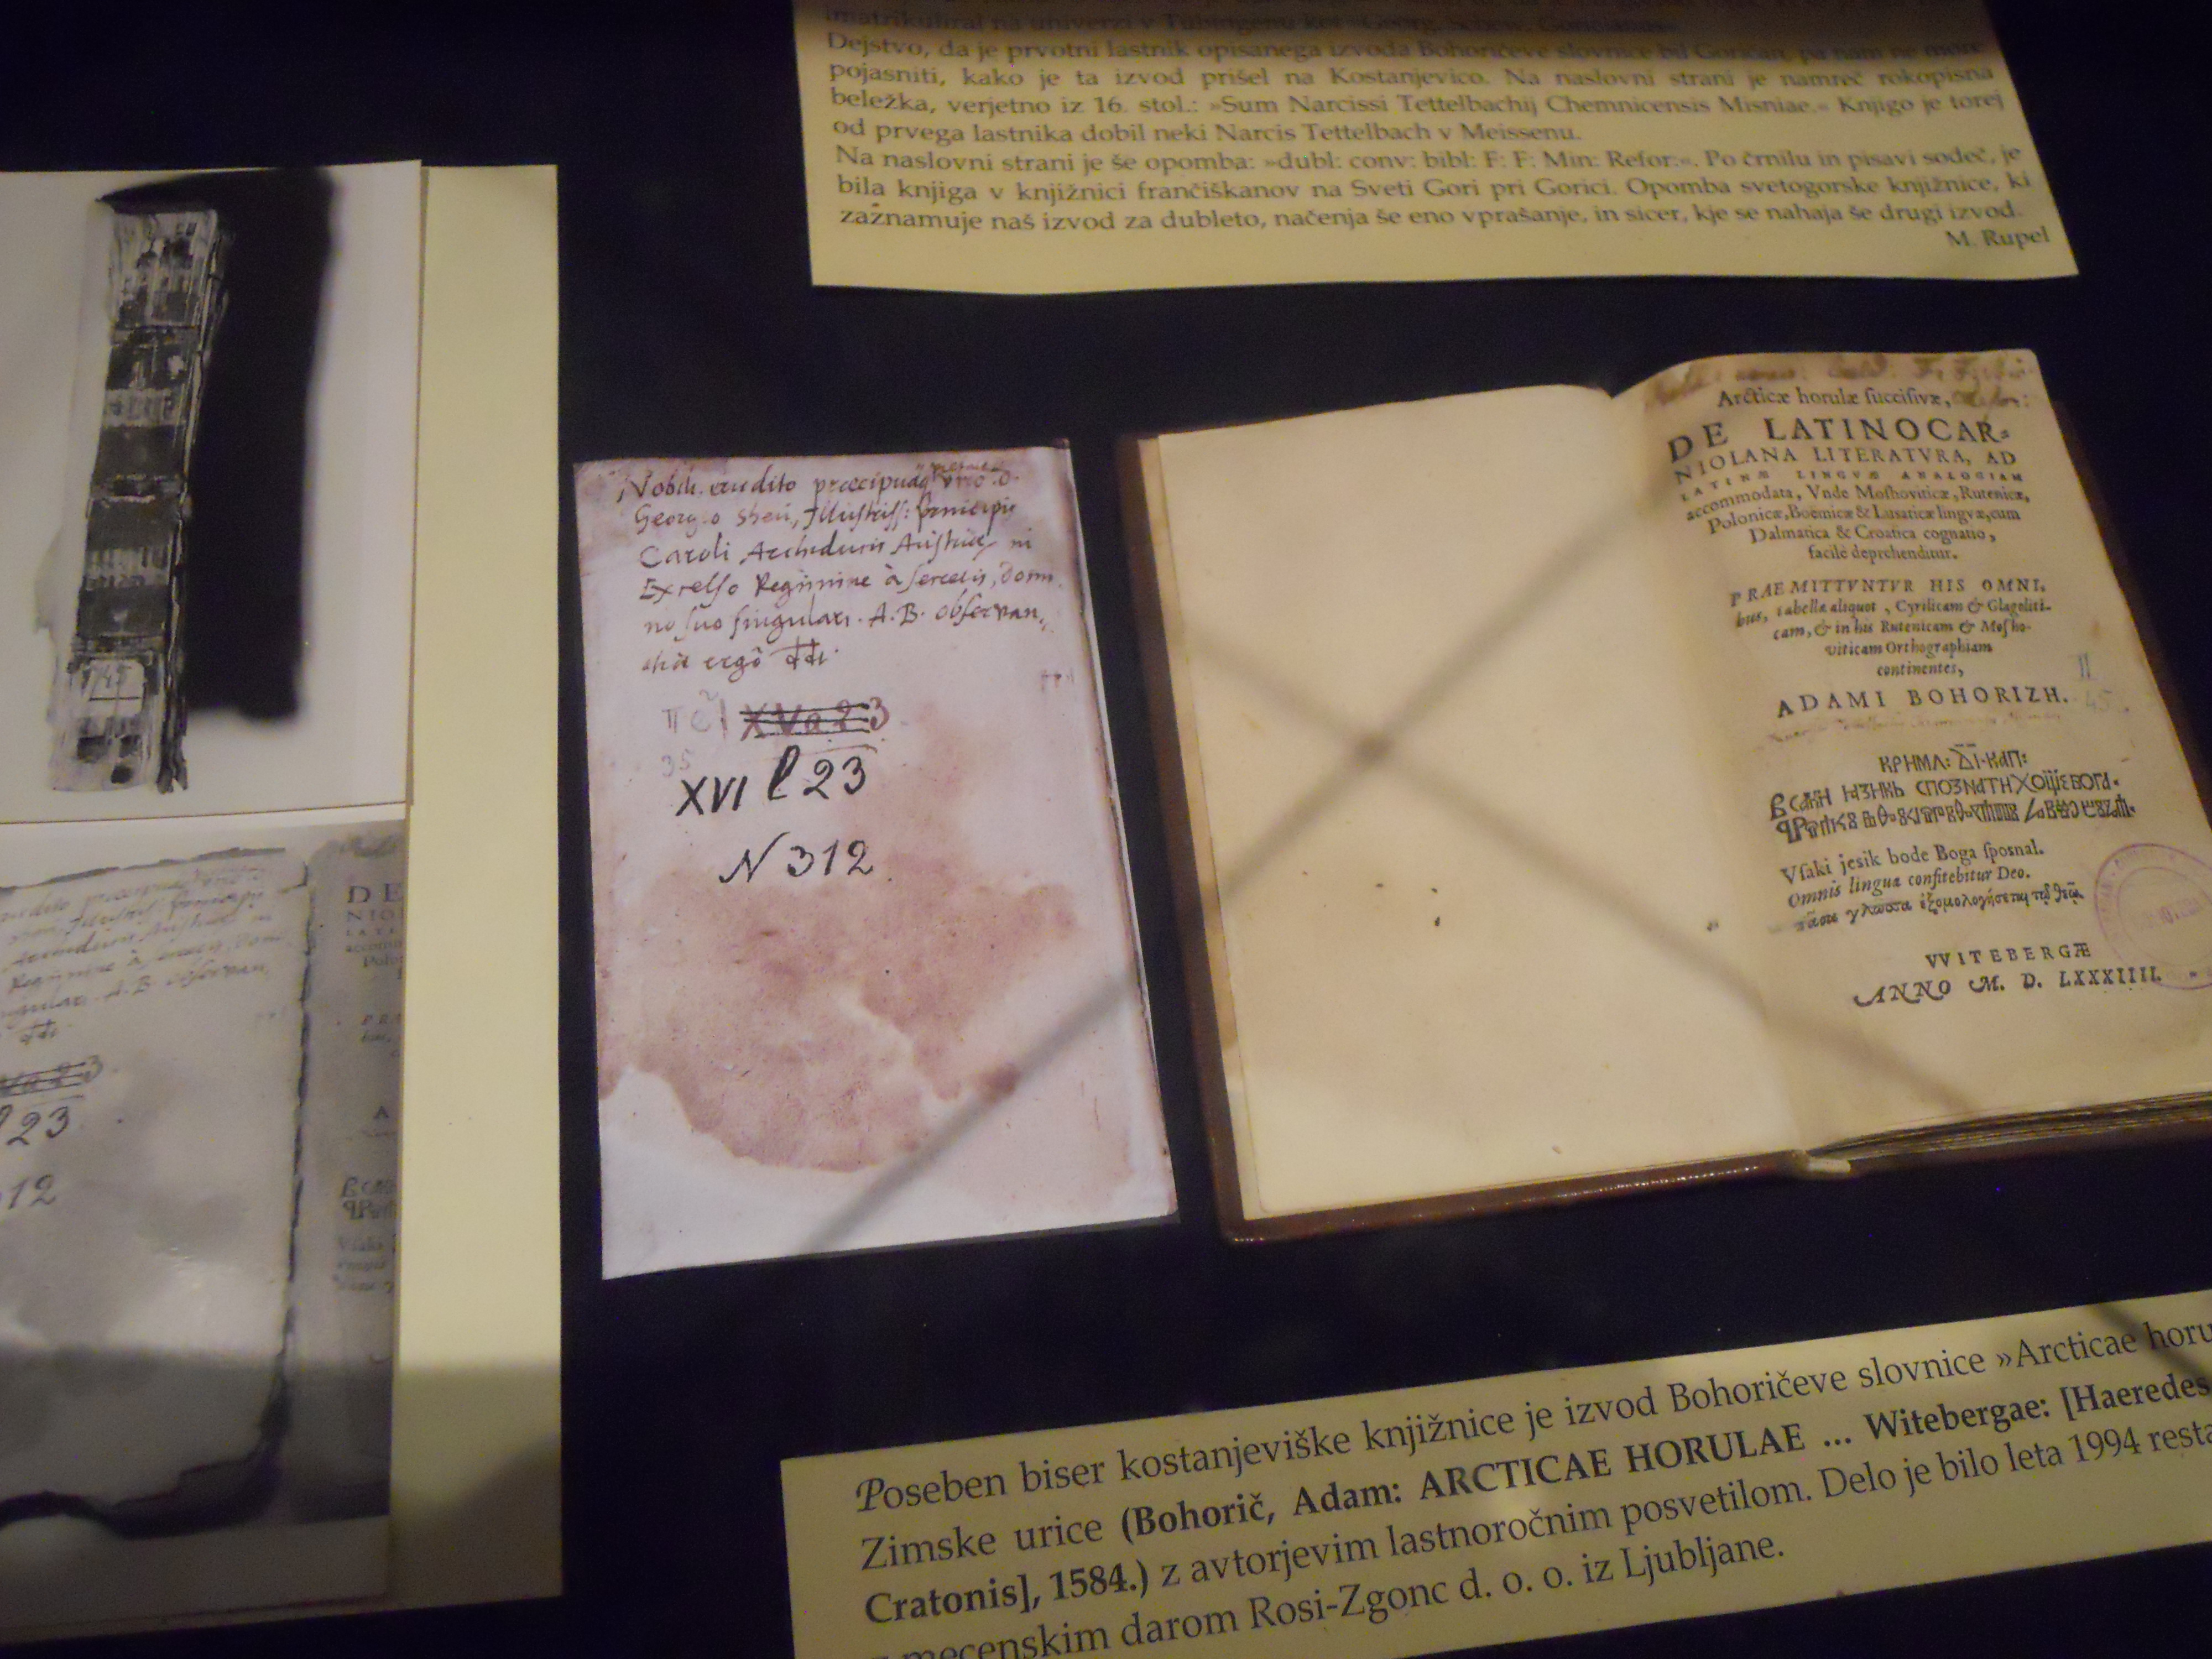 matrikuliral na univerzi v Tübingenu kot »Georg.
Dejstvo, da je prvotni lastnik opisanega izvoda Bohoričeve slovnice bil Goričan, pa nam ne more
pojasniti, kako je ta izvod prišel na Kostanjevico. Na naslovni strani je namreč rokopisna
beležka, verjetno iz 16. stol.: »Sum Narcissi Tettelbachij Chemnicensis Misniae.« Knjigo je torej
od prvega lastnika dobil neki Narcis Tettelbach v Meissenu.
Na naslovni strani je še opomba: »dubl: conv: bibl: F: F: Min: Refor:«. Po črnilu in pisavi sodeč, je
bila knjiga v knjižnici frančiškanov na Sveti Gori pri Gorici. Opomba svetogorske knjižnice, ki
zaznamuje naš izvod za dubleto, načenja še eno vprašanje, in sicer, kje se nahaja še drugi izvod.
M. Rupel
Nobili. erudito praecipuaq
Georg.o Illustriss: principis
Caroli Archiducis Austriae, in
Excelso Regimine à secretis, Domi
no suo singulari. A.B. observan,,
tiae ergò
XVa23
XVI l 23
N 312
Arcticæ horulæ ſucciſivæ,
DE LATINOCAR-
NIOLANA LITERATVRA, AD
LATINÆ LINGVÆ ANALOGIAM
accommodata, Vnde Moſhoviticæ, Rutenicæ,
Polonicæ, Boëmicæ & Luſaticæ lingvæ, cum
Dalmatica & Croatica cognatio,
facilè deprehenditur.
PRAEMITTVNTVR HIS OMNI,
bus, tabellæ aliquot, Cyrilicam & Glagoliti-
cam, & in his Rutenicam & Moſho-
viticam Orthographiam
continentes,
ADAMI BOHORIZH.
II
45
Vſaki jesik bode Boga ſposnal.
Omnis lingua confitebitur Deo.
πᾶσα γλῶσσα ἐξομολογήσεται τῷ θεῷ.
VVITEBERGÆ
ANNO M. D. LXXXIIII.
Poseben biser kostanjeviške knjižnice je izvod Bohoričeve slovnice »Arcticae horu
Zimske urice (Bohorič, Adam: ARCTICAE HORULAE ... Witebergae: [Haeredes
Cratonis], 1584.) z avtorjevim lastnoročnim posvetilom. Delo je bilo leta 1994 resta
mecenskim darom Rosi-Zgonc d. o. o. iz Ljubljane.